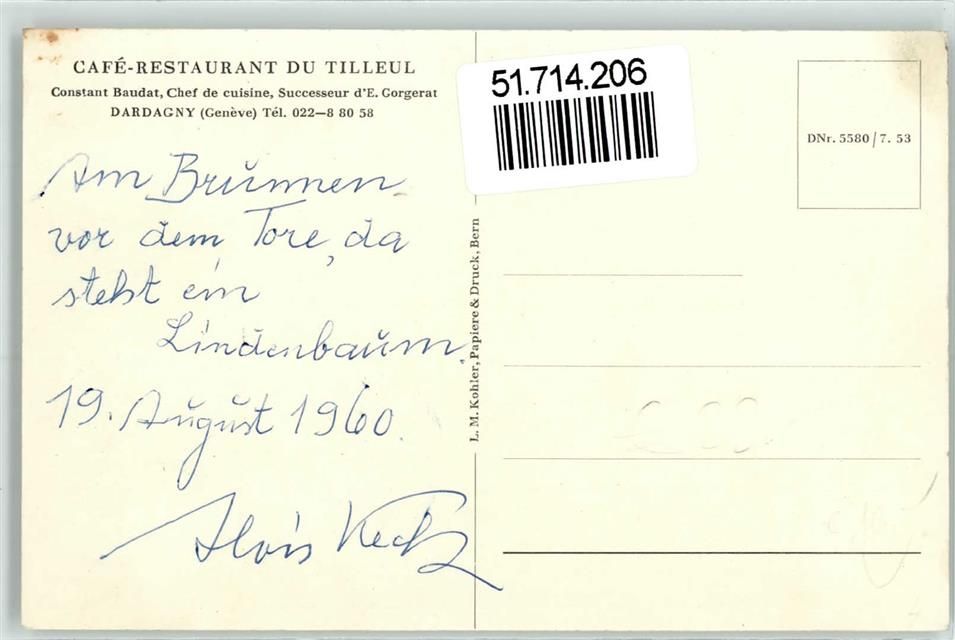 CAFÉ-RESTAURANT DU TILLEUL
Constant Baudat, Chef de cuisine, Successeur d'E. Gorgerat
DARDAGNY (Genève) Tél. 022—8 80 58
Am Brunnen
vor dem Tore, da
steht ein
Lindenbaum.
19. August 1960.
Alois
L. M. Kohler, Papiere & Druck, Bern
51.714.206
DNr. 5580/7. 53